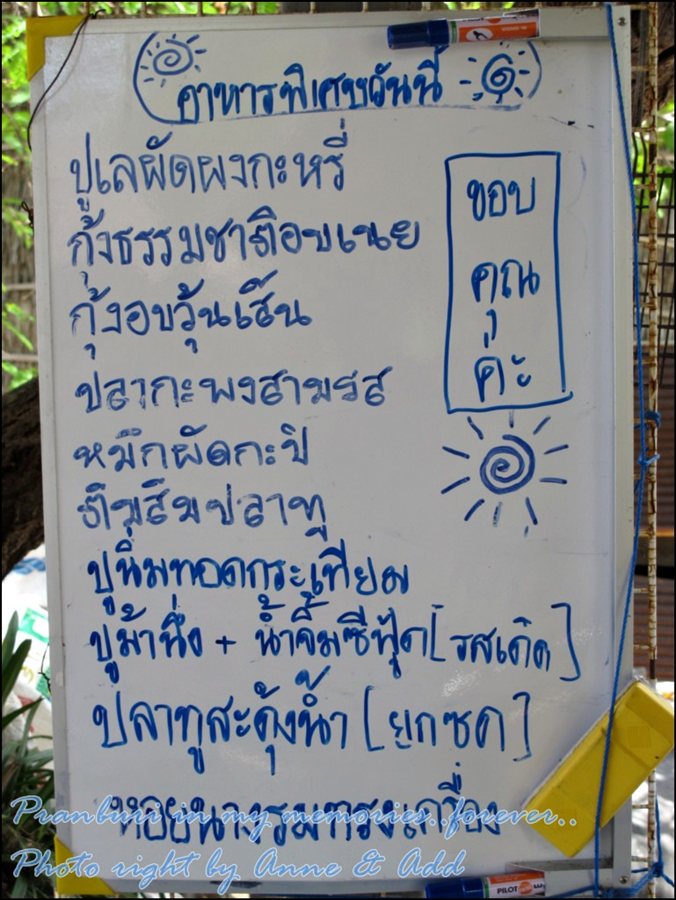 อาหารพิเศษวันนี้
ปูเลผัดผงกะหรี่
กุ้งธรรมชาติอบเนย
กุ้งอบวุ้นเส้น
ปลากะพงสามรส
หมึกผัดกะปิ
ต้มส้มปลาทู
ปูนิ่มทอดกระเทียม
ปูม้านึ่ง + น้ำจิ้มซีฟู้ด [รสเด็ด]
ปลาทูสะดุ้งน้ำ [ยกซด]
หอยนางรมทรงเครื่อง
ขอบ
คุณ
ค่ะ
PILOT
Pranburi in my memories..forever..
Photo right by Anne & Add